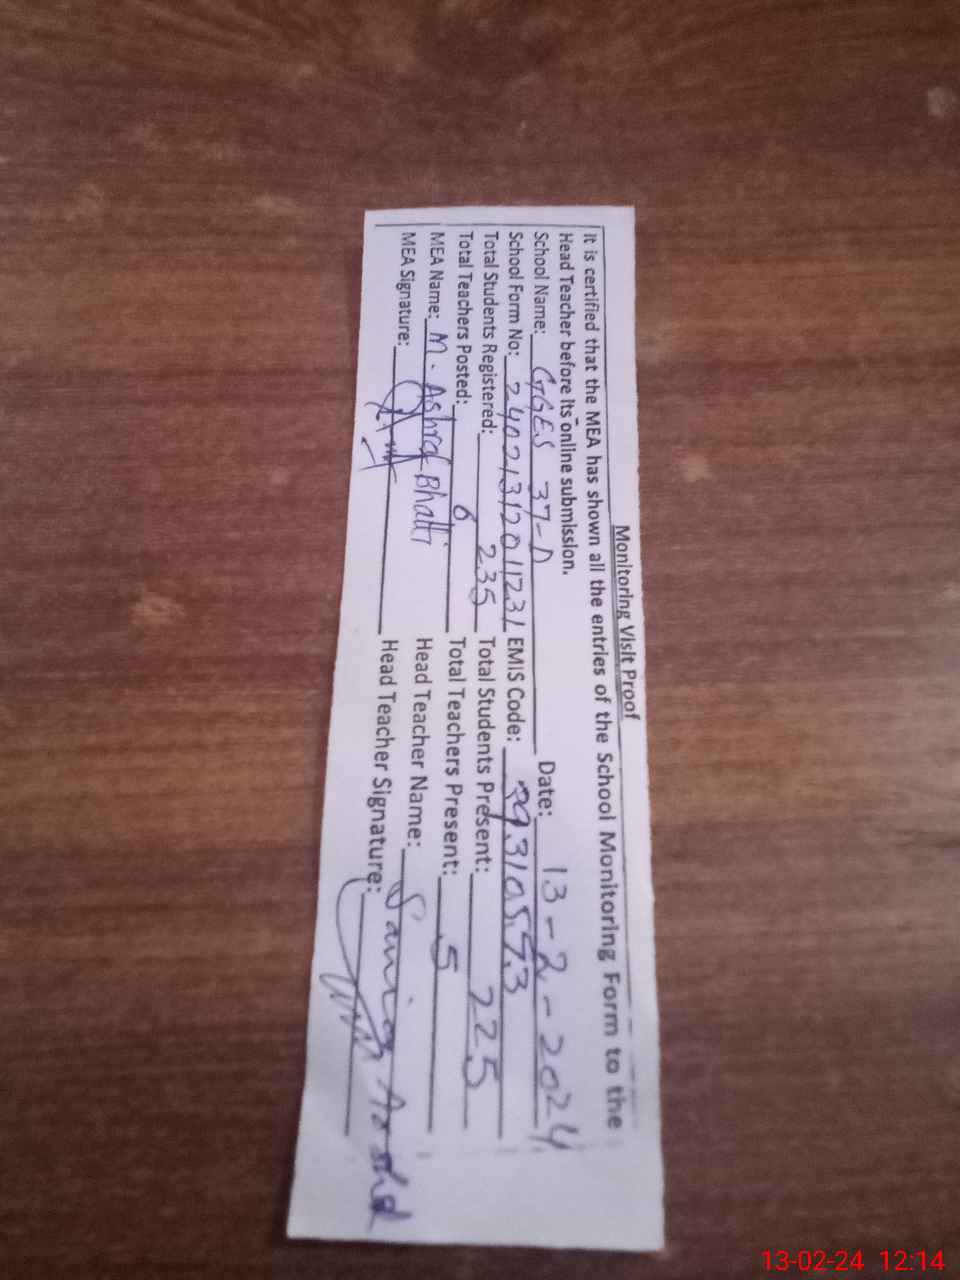 Monitoring Visit Proof
It is certified that the MEA has shown all the entries of the School Monitoring Form to the
Head Teacher before its online submission.
School Name: GGES 37-D Date: 13-2-2024
School Form No: 24021312011231 EMIS Code: 39310573
Total Students Registered: 235 Total Students Present: 225
Total Teachers Posted: 6 Total Teachers Present: 5
MEA Name: M. Ashraf Bhatti Head Teacher Name:
MEA Signature: Head Teacher Signature:
13-02-24 12:14